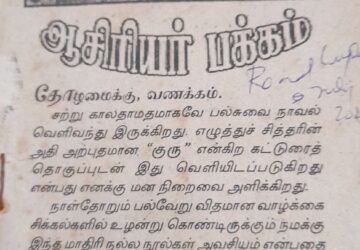 ஆசிரியர் பக்கம்
தோழமைக்கு, வணக்கம்.
சற்று காலதாமதமாகவே பல்சுவை நாவல்
வெளிவந்து இருக்கிறது. எழுத்துச் சித்தரின்
அதி அற்புதமான "குரு" என்கிற கட்டுரைத்
தொகுப்புடன் இது வெளியிடப்படுகிறது
என்பது எனக்கு மன நிறைவை அளிக்கிறது.
நாள்தோறும் பல்வேறு விதமான வாழ்க்கை
சிக்கல்களில் உழன்று கொண்டிருக்கும் நமக்கு
இந்த மாதிரி நல்ல நூல்கள் அவசியம் என்பதை